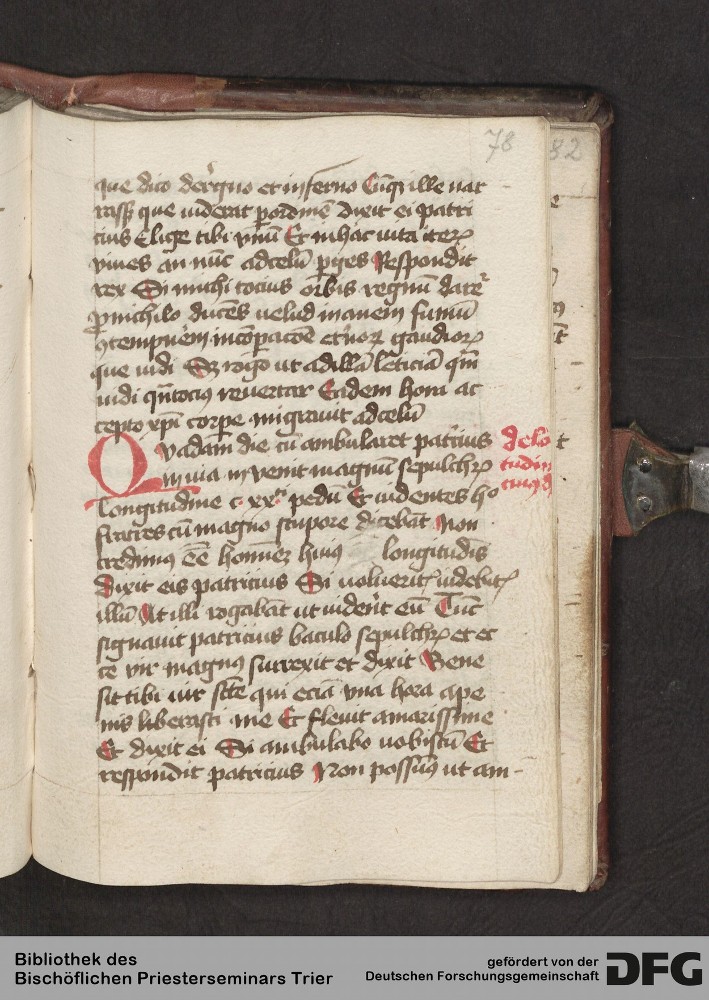 78
82
que dico de regno et inferno Cumqꝫ ille nar
rasset que viderat per ordinem dixit ei patri
cius Elige tibi vnum Et in hac vita iterum
viues an nunc ad celum perges Respondit
rex Si michi tocius orbis regnum daretur
pro nichilo ducens velud inanem fumum
contempnerem in comparacione eternorum gaudiorum
que vidi Sed rogo ut ad illam leticiam quam
vidi quantocius reuertar Eadem hora ac
cepto xpi corpore migrauit ad celum
Quadam die cum ambularet patricius
in via inuenit magnum sepulchrum
longitudine c. xx. pedum Et videntes hoc
fratres cum magno stupore dicebant Non
credimus esse hominem huius longitudinis
Dixit eis patricius Si volueritis videbitis
illum At illi rogabant ut viderent eum Tunc
signauit patricius baculo sepulchrum et ec
ce vir magnus surrexit et dixit Bene
sit tibi vir sancte qui eciam vna hora a pe
nis liberasti me Et fleuit amarissime
Et dixit ei Si ambulabo vobiscum Et
respondit patricius Non possumus ut am-
Bibliothek des
Bischöflichen Priesterseminars Trier
gefördert von der
Deutschen Forschungsgemeinschaft
DFG